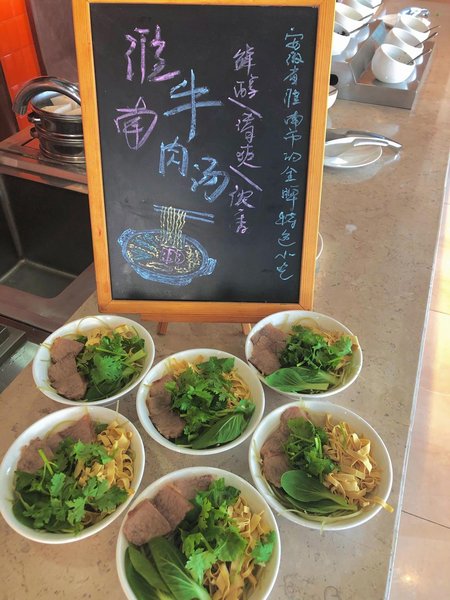 淮南
牛肉汤
鲜醇、清爽、浓香
安徽省淮南市的金牌特色小吃